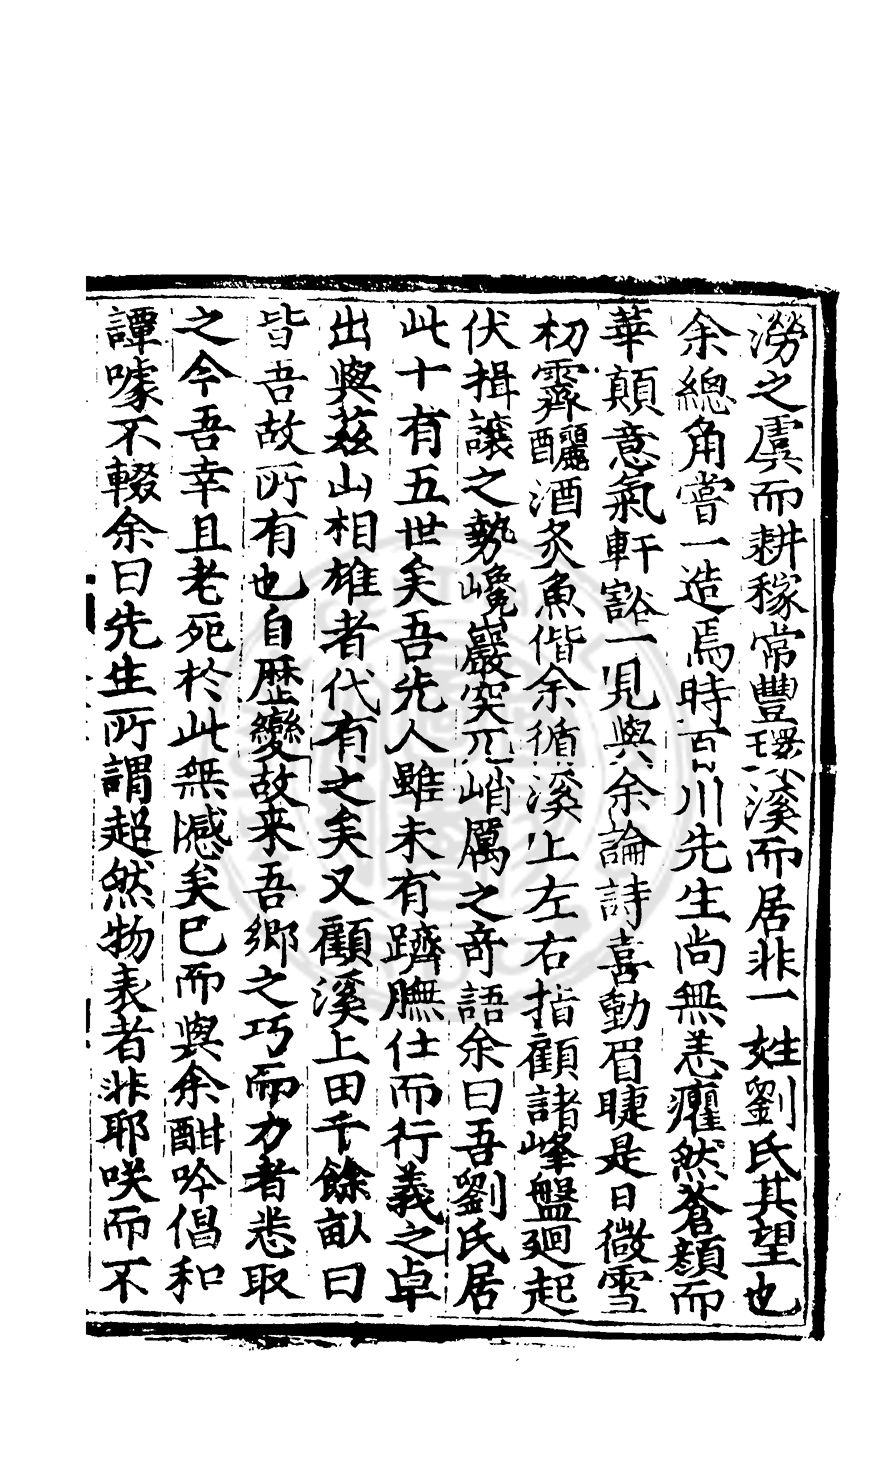 澇之虞而耕稼常豐環溪而居非一姓劉氏其望也
余總角嘗一造焉時百川先生尚無恙癯然蒼顔而
華顛意氣軒豁一見與余論詩喜動眉睫是日微雪
初霽釃酒炙魚偕余循溪上左右指顧諸峰盤廻起
伏揖讓之勢巉巖突兀峭厲之奇語余曰吾劉氏居
此十有五世矣吾先人雖未有躋膴仕而行義之卓
出與茲山相雄者代有之矣又顧溪上田千餘畝曰
皆吾故所有也自歷變故来吾鄉之巧而力者悉取
之今吾幸且老死於此無憾矣已而與余酣吟倡和
譚噱不輟余曰先生所謂超然物表者非耶咲而不